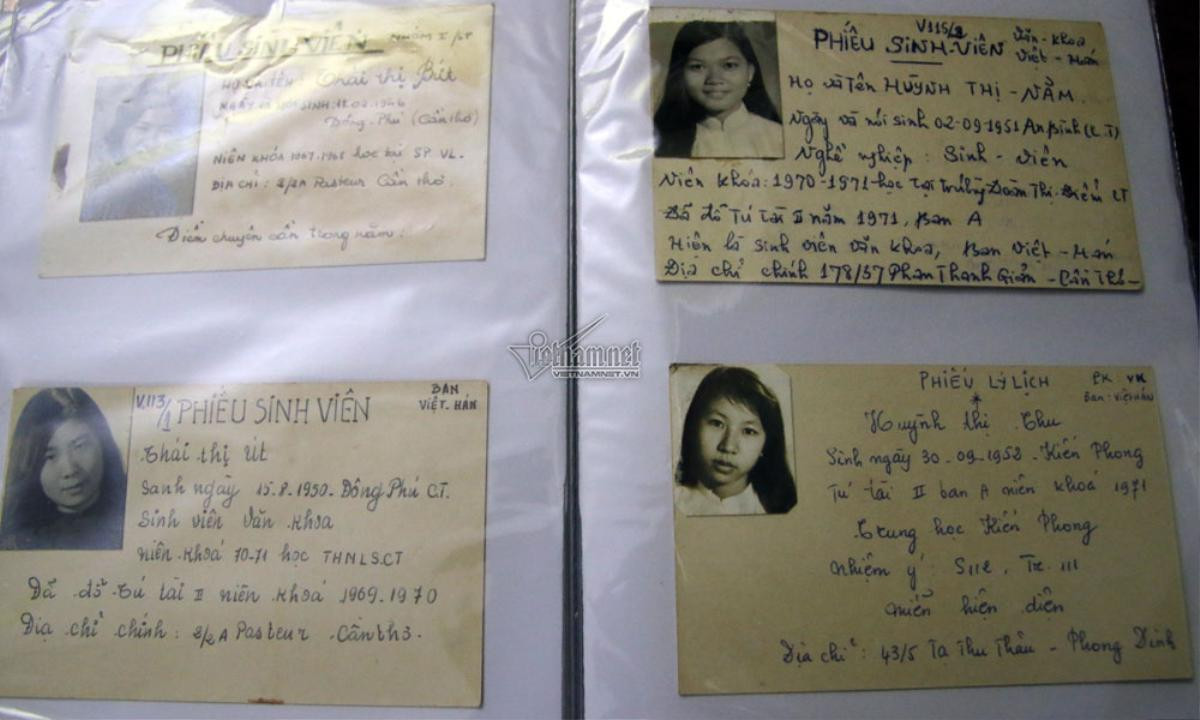 PHIẾU SINH VIÊN
NHÓM I/SP
HỌ VÀ TÊN: Thái thị Bút
NGÀY VÀ NƠI SINH: 18.02.1946
Đông-Phú (Cần thơ)
NIÊN KHÓA 1967-1968 học tại SP VL.
ĐỊA CHỈ: 2/2A Pasteur Cần thơ.
Điển chuyên cần trong năm.
V115/2
PHIẾU SINH-VIÊN
Văn-Khoa
Việt-Hán
Họ và Tên HUỲNH THỊ-NĂM
Ngày và nơi sinh 02-09-1951 An Bình (C.T)
Nghề nghiệp: Sinh-viên
Niên khóa: 1970-1971-học tại trường Đoàn Thị-Điểm CT
Đã đỗ Tú tài II năm 1971, Ban A
Hiện là sinh viên văn khoa, Ban Việt-Hán
Địa chỉ chính 178/57 Phan Thanh Giản-Cần Thơ-
vietnamnet
VIETNAMNET.VN
V.113/1
PHIẾU SINH VIÊN
BAN
VIỆT.HÁN
Thái thị Út
Sanh ngày 15.8.1950-Đông Phú C.T.
Sinh viên Văn khoa
niên khoá 70-71 học THNLS.CT
Đã đỗ Tú tài II niên khoá 1969.1970
Địa chỉ chính: 2/2A Pasteur. Cần thơ.
PHIẾU LÝ LỊCH
PK: VK
Ban: VIỆT HÁN
Huỳnh thị Thu
Sinh ngày 30-09-1952-Kiến Phong
Tú tài II ban A niên khoá 1971
Trung học Kiến Phong
Nhiệm ý: S112, Tr. 111
miễn hiện diện
Địa chỉ: 43/5 Tạ Thu Thâu-Phong Dinh